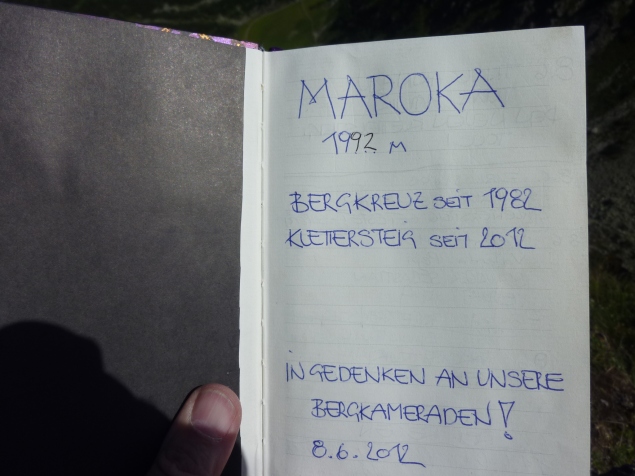 MAROKA
1992 M
BERGKREUZ SEIT 1982
KLETTERSTEIG SEIT 2012
IN GEDENKEN AN UNSERE
BERGKAMERADEN!
8.6.2012